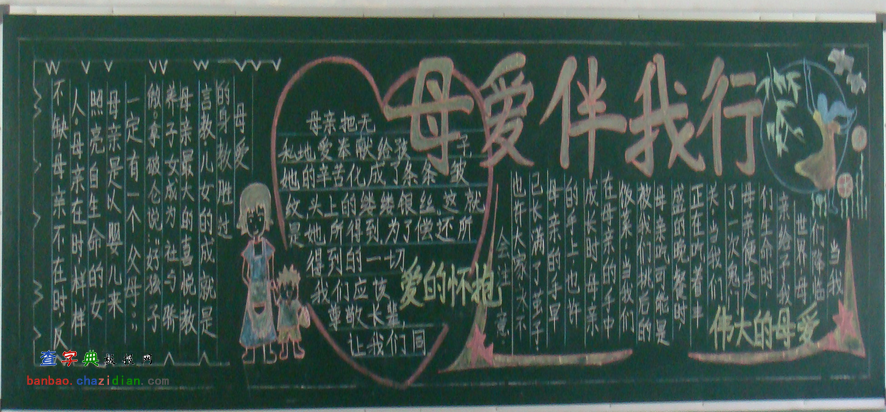 母爱伴我行
当我
们降临
世界,母
亲给予我
们生命时,
母亲便走
了一次鬼门
关;当我们
正在吃着丰
盛的晚餐时,
母亲就可能是
被我们挑剔的
做菜;当我们
在母亲的手中
成长时,母亲
的手上也许
母亲的手早
已长满了茧子;
也许大家不
会注意
伟大的母爱
母亲把无
私地爱奉献给孩子
她的辛苦化成了条条皱
纹,头上的缕缕银丝,这就
是她所得到,为了偿还所
得到的一切
我们应该
尊敬长辈
让我们同
爱的怀抱
母爱
的身教胜过
言教,儿女的成就是
母亲最大的喜悦,教
弟子女成为社与骄
傲。拿破仑说:“好孩子
一定有一个父母……
母亲是以婴儿来
照亮自生命的女
人。母亲在时样样
不缺,母亲不在时,反
查字典
banbao.chazidian.com